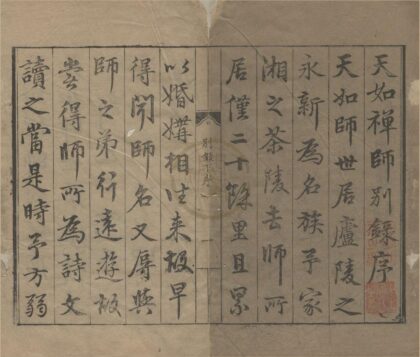 天如禪師別録序
天如師世居廬陵之
永新為名族予家
湘之茶陵去師所
居僅二十餘里且累
以婚媾相往来故早
得聞師名又辱與
師之弟行遠遊故
甞得師所為詩文
讀之當是時予方弱